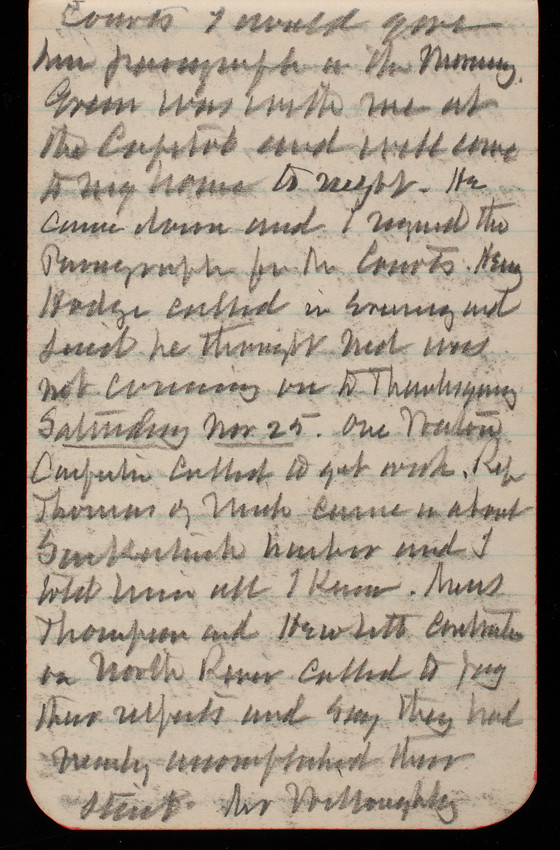 Courts I would give
him paragraph in the morning.
Green was with me at
the Capitol and will come
to my house to night. He
came down and I signed the
Paragraph for the Courts. Henry
Hodge called in evening and
said he thought Ned was
not coming on to Thanksgiving
Saturday Nov 25. One
Carpenter called to get work. Rep
Thomas of Mich came in about
harbor and I
told him all I knew. Mess
Thompson and Hewlett contractors
on North River called to pay
their respects and say they had
nearly accomplished their
stint. Mr Willoughby